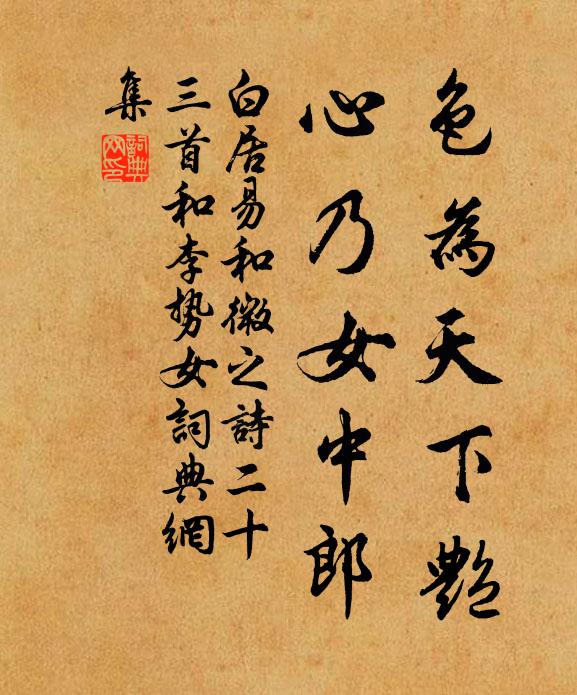 色為天下艷
心乃女中郎
白居易和微之詩二十
三首和李勢女詞典網
集
詞典网印